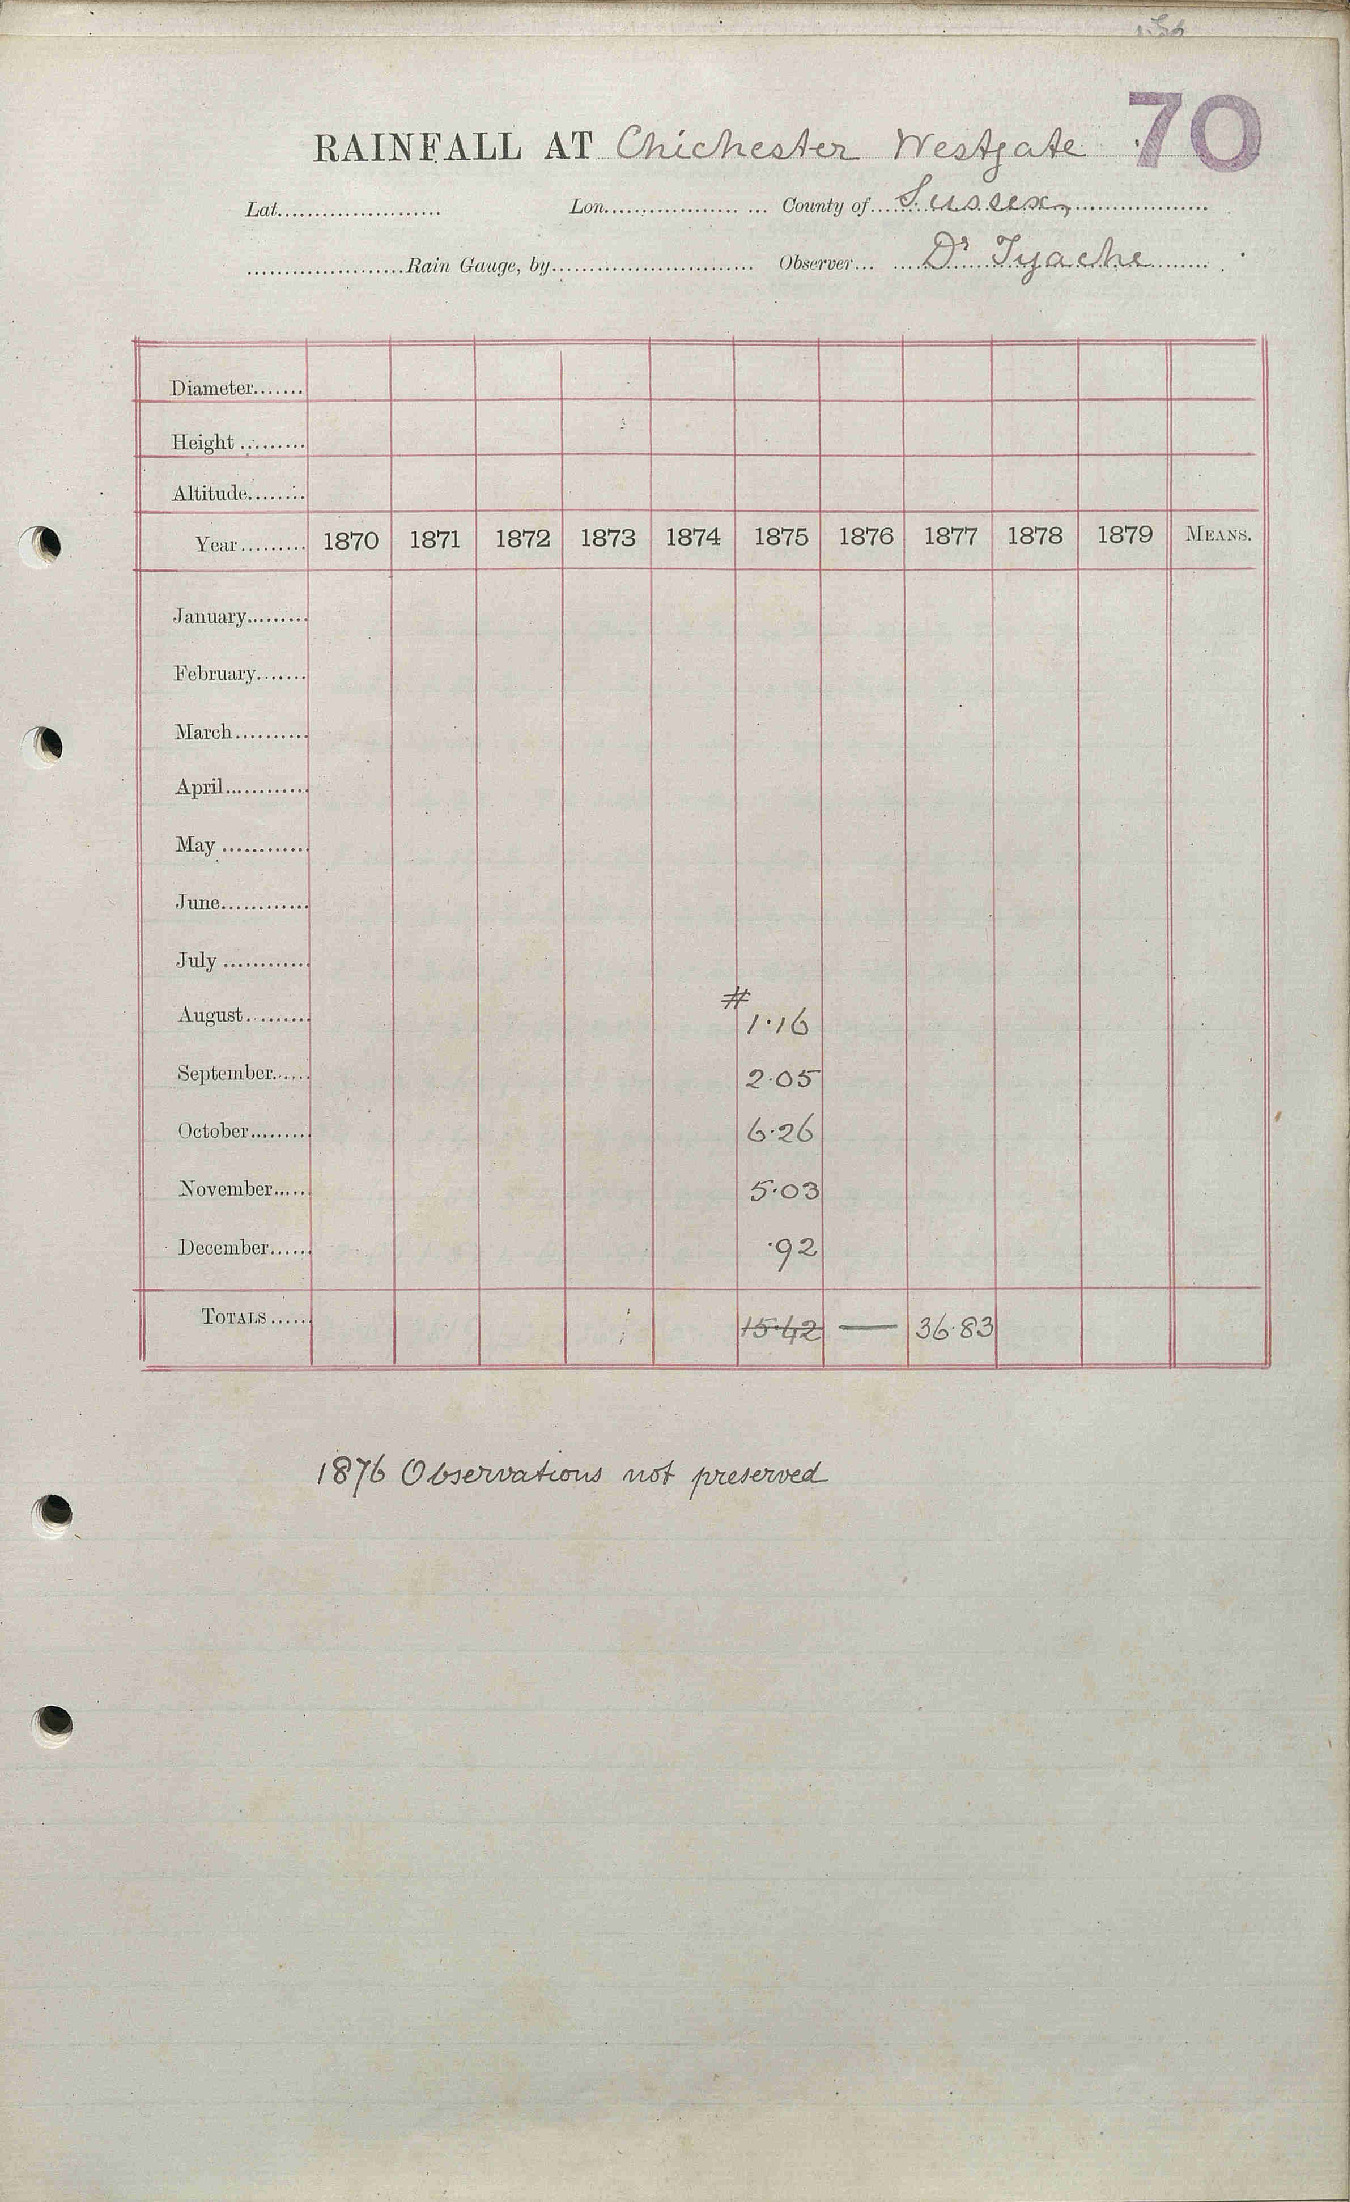 70
RAINFALL AT Chichester Westgate
Lat. Lon. County of Sussex
Rain Gauge, by Observer Dr Tyacke
Diameter
Height
Altitude
Year 1870 1871 1872 1873 1874 1875 1876 1877 1878 1879 MEANS.
January
February
March
April
May
June
July
#
August 1·16
September 2·05
October 6·26
November 5·03
December ·92
TOTALS 15·42 — 36·83
1876 Observations not preserved